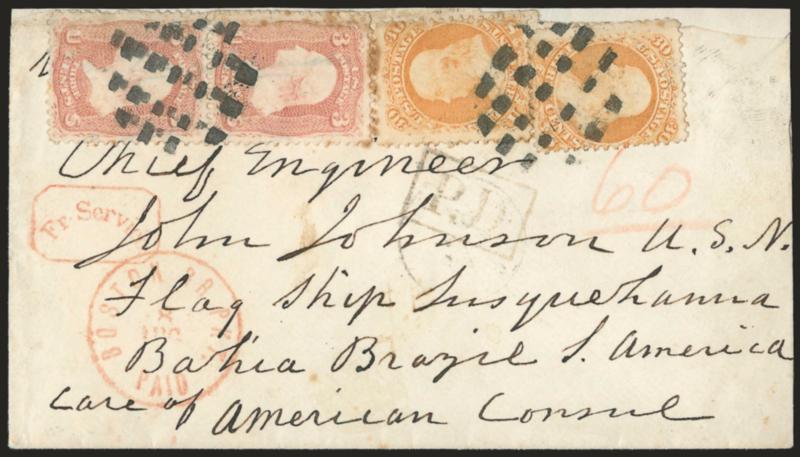 U 3
3
30 30
30 30
U.S. POSTAGE
Chief Engineer
60
P.D.
Fr. Servi
John Johnson U.S.N.
BOSTON BR. PKT.
PAID
Flag Ship Susquehanna
Bahia Brazil S. America
care of American Consul